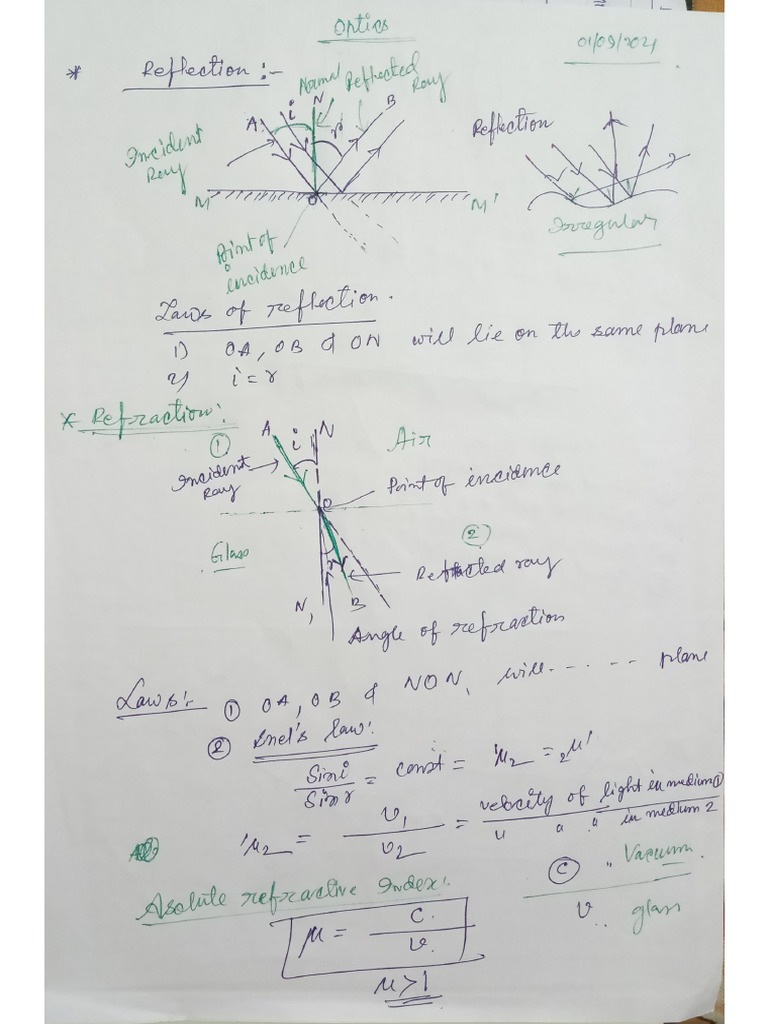 Optics
01/09/2021
* Reflection :-
Normal
Reflected Ray
A
i
N
r
B
Incident Ray
M
O
M'
Point of incidence
Reflection
Irregular
Laws of reflection.
1) OA, OB & ON will lie on the same plane
2) i = r
* Refraction:
①
A
i
N
Air
Incident Ray
Point of incidence
O
Glass
②
r
Refracted ray
N₁
B
Angle of refraction
Laws:- ① OA, OB & NON, will - - - - - - plane
② Snel's law:
Sin i / Sin r = const = ¹μ₂ = ₂μ¹
¹μ₂ = v₁ / v₂ = velocity of light in medium ① / " " " in medium 2
Asolute refractive Index:
Ⓒ " Vacuum
v " glass
μ = C / v
μ > 1